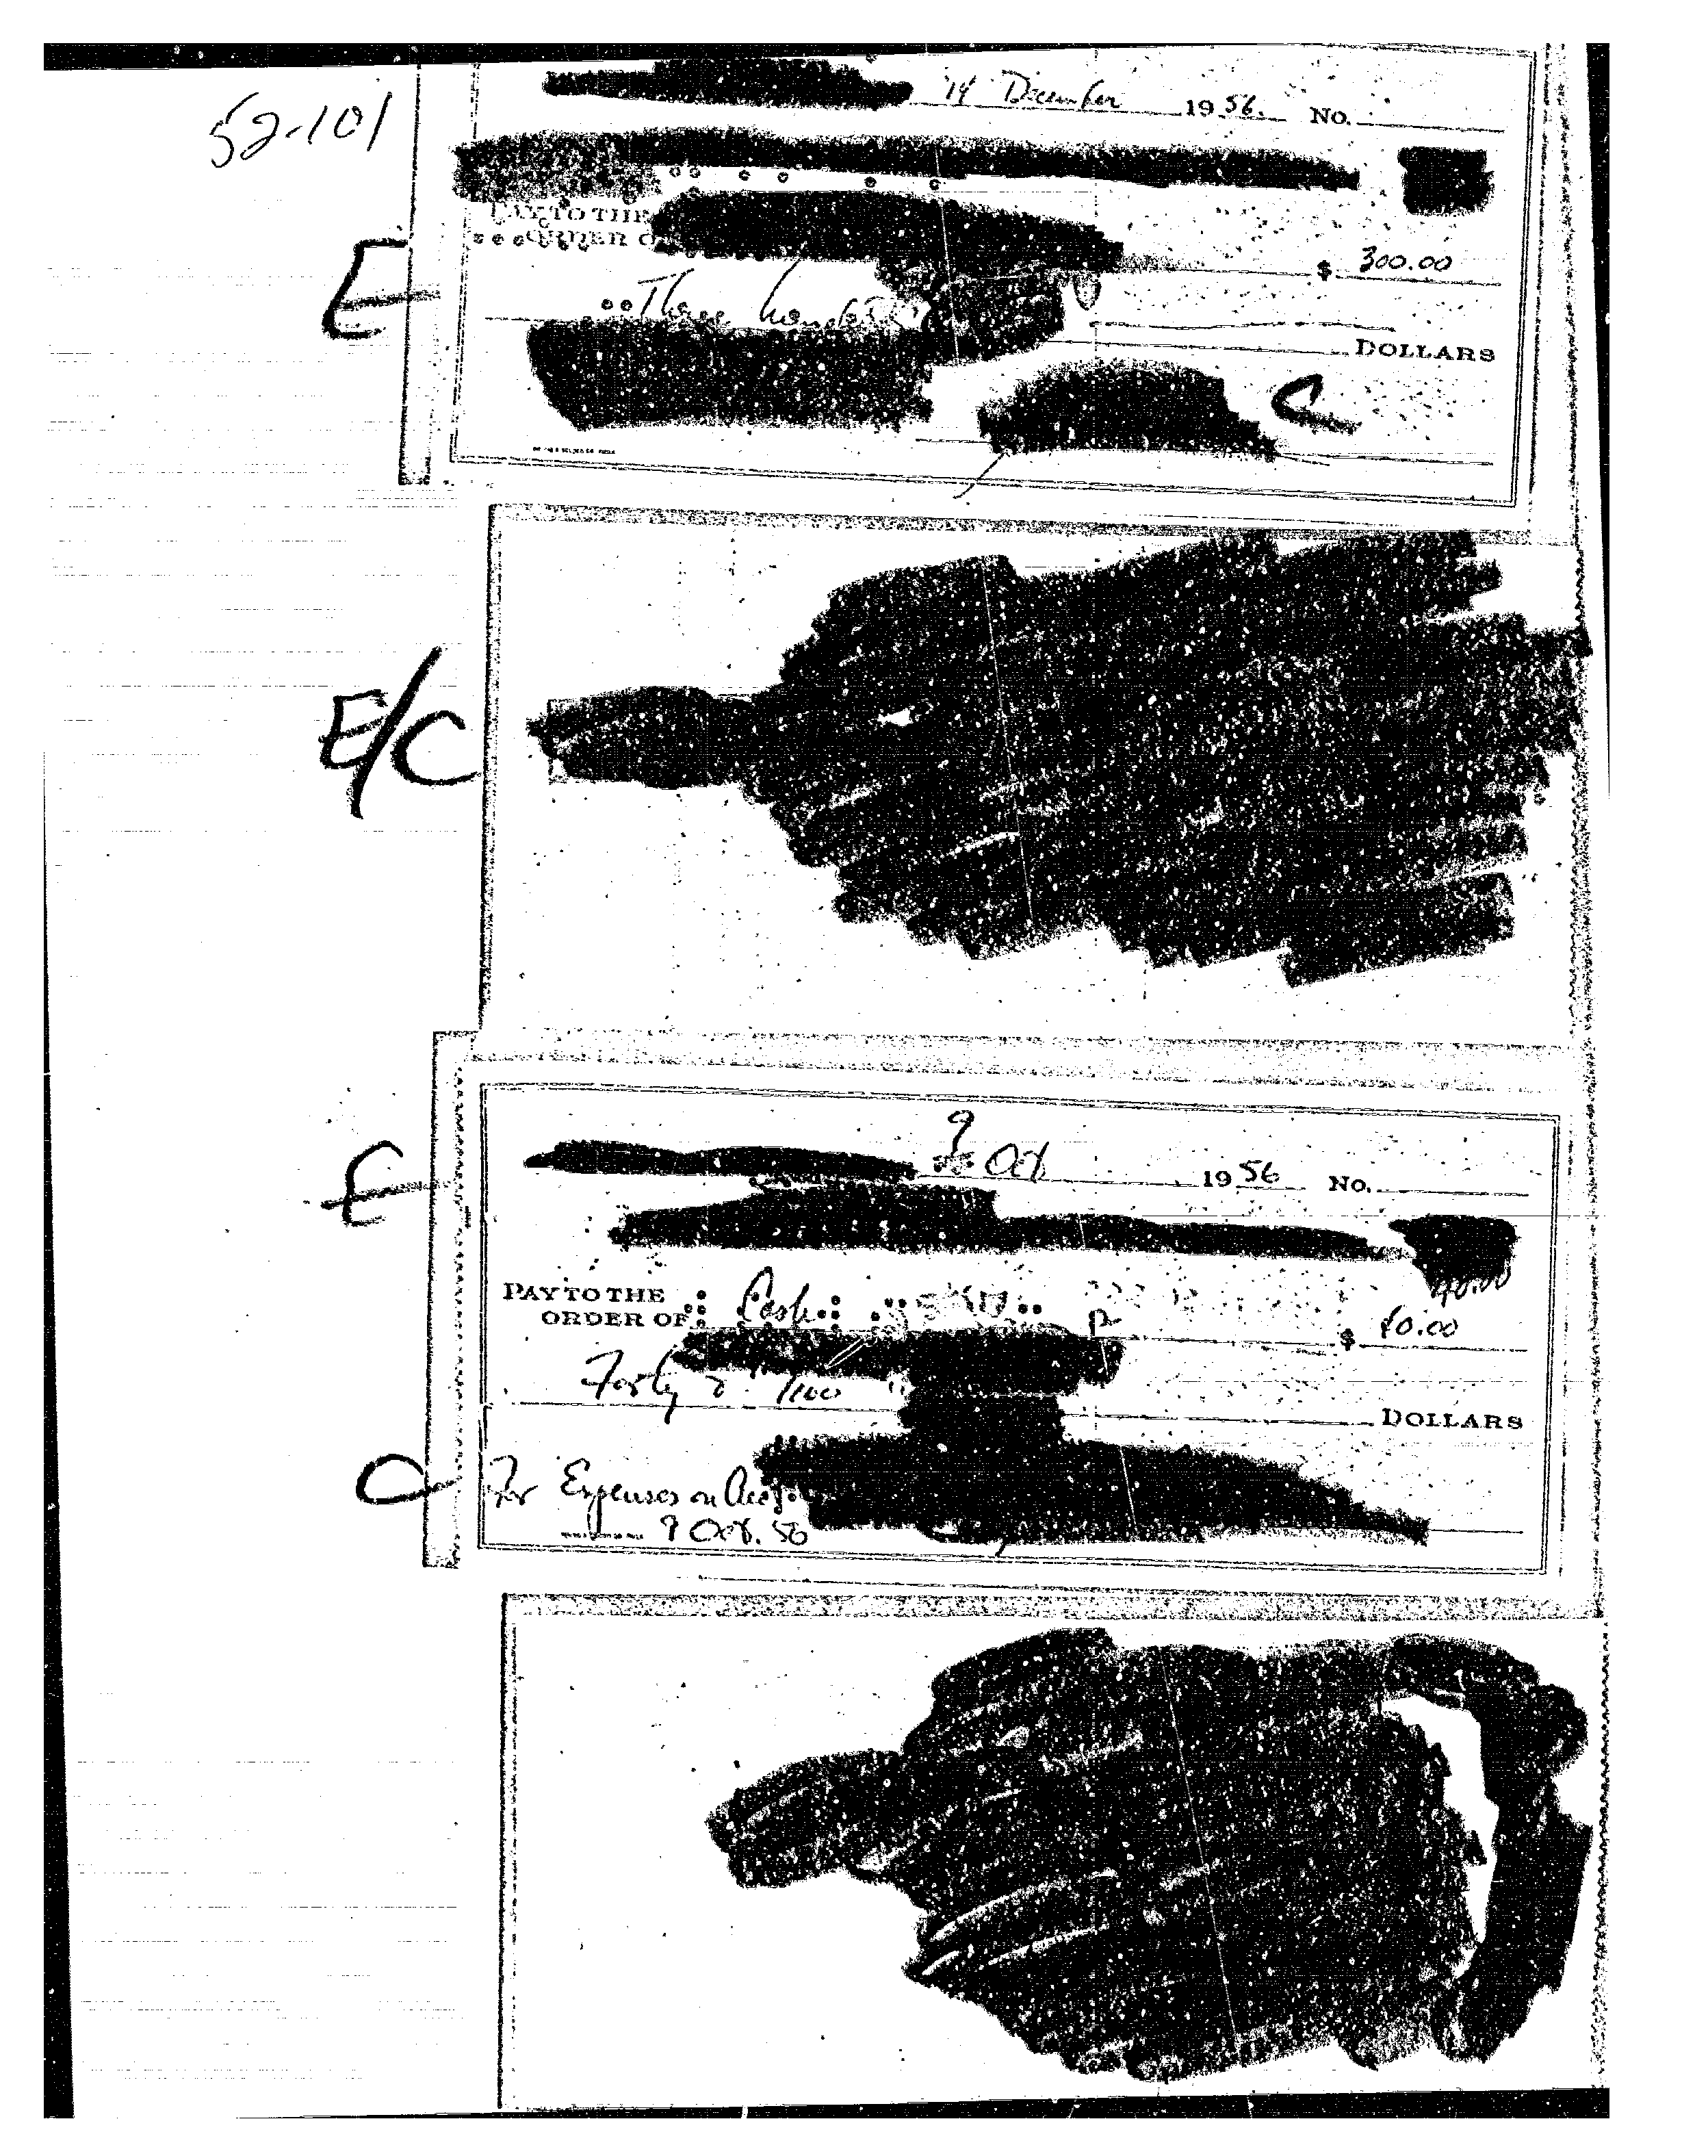 52-101
14 December 1956. No.
PAY TO THE
ORDER O
$ 300.00
E
Three
DOLLARS
C
E/C
9
Oct 1956 No.
E
40.00
PAY TO THE
ORDER OF Cash
$ 40.00
Forty
DOLLARS
C
For Expenses on Acct.
9 Oct. 56